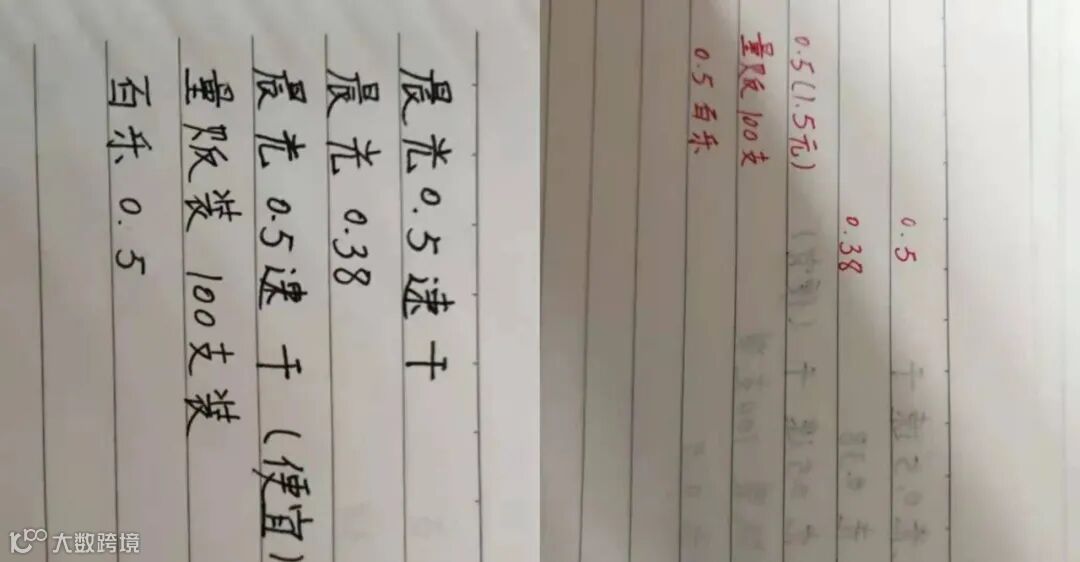 晨光0.5速干
晨光 0.38
晨光 0.5速干(便宜)
量贩装 100支装
百乐 0.5
0.5
0.38
0.5(1.5元)
量贩100支
0.5百乐
大数跨境